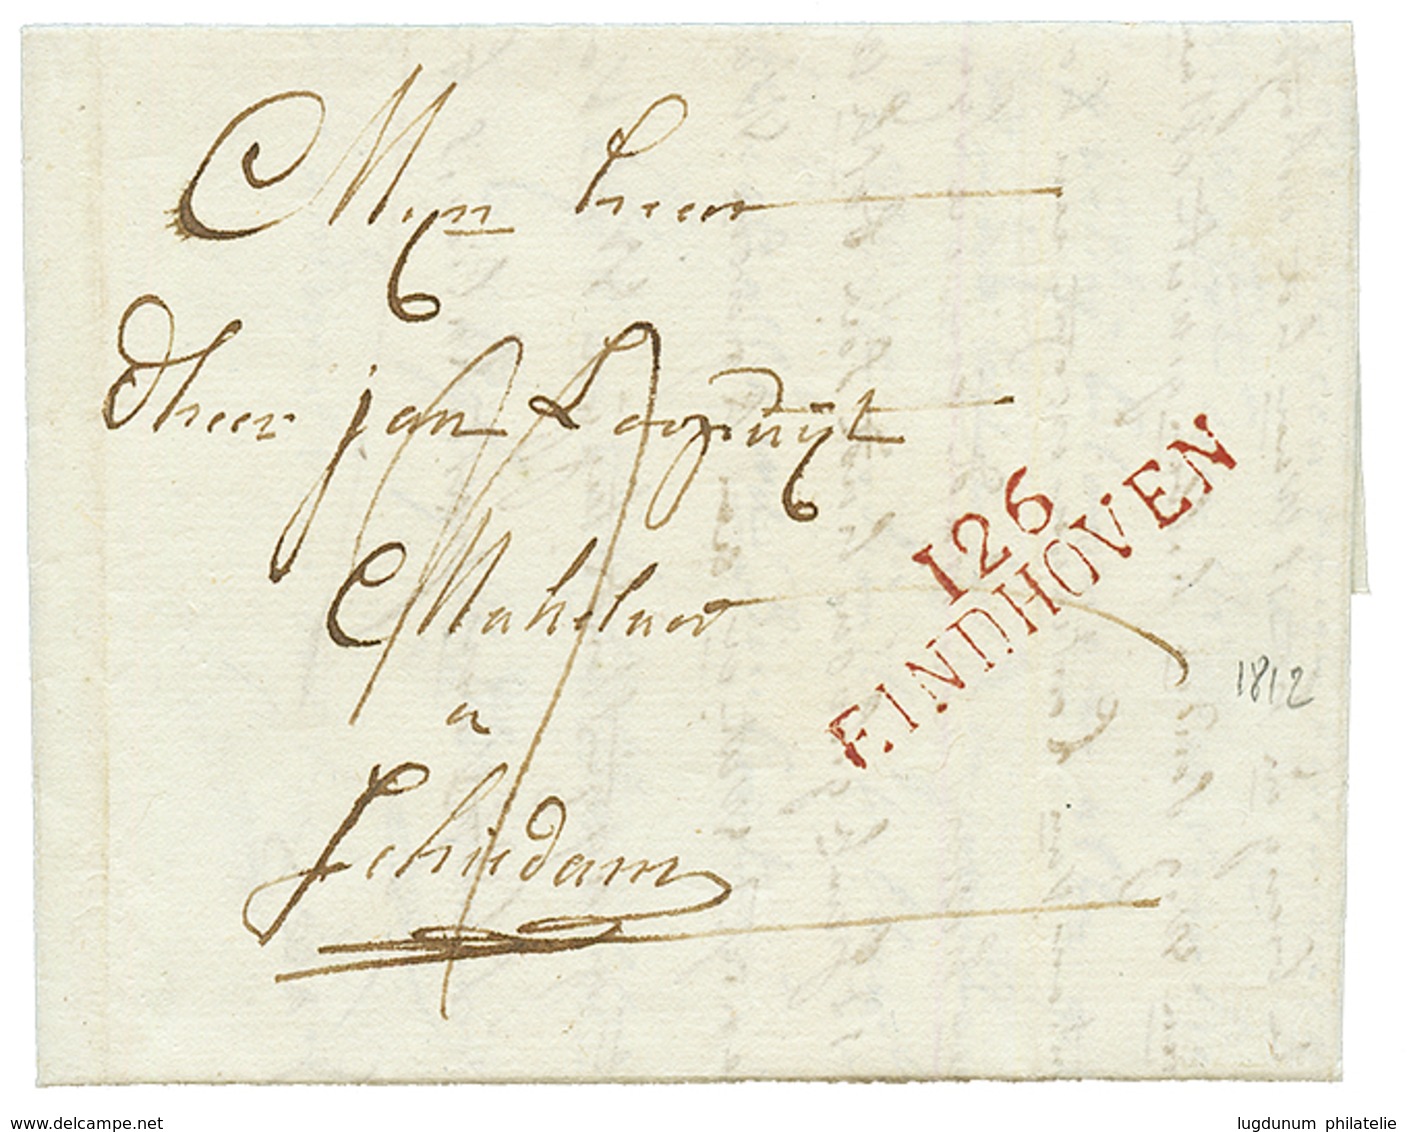 Mijn heer
dheer jan
Makelaar
a
Schiedam
126
EINDHOVEN
1812
www.delcampe.net
lugdunum philatelie